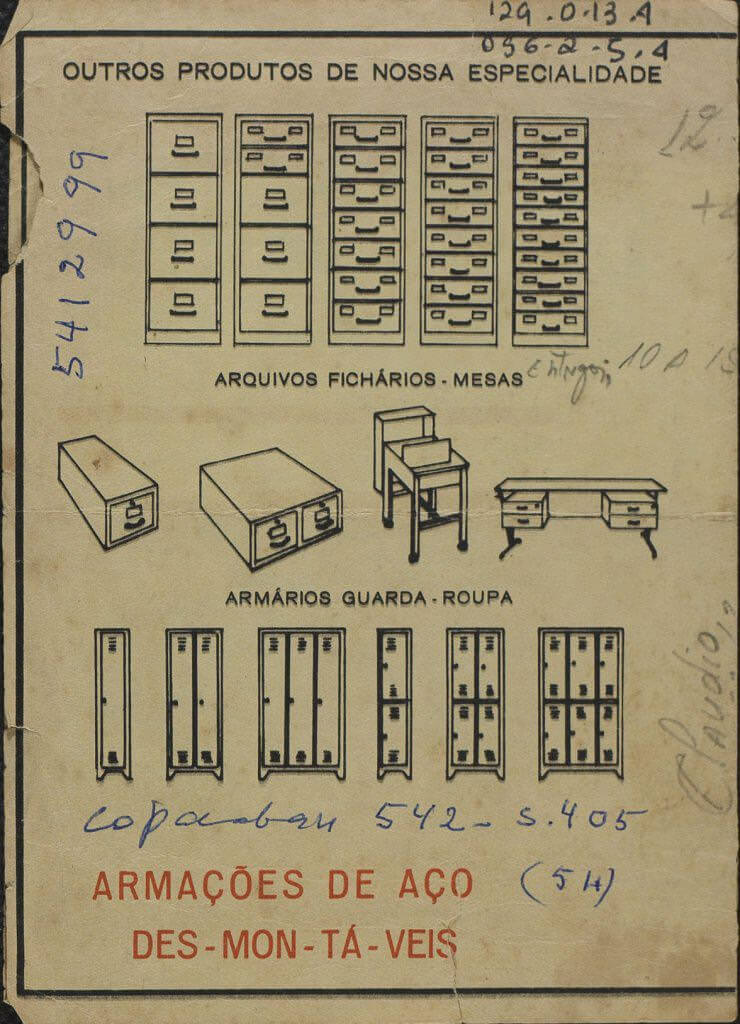 129.0.13.A
036-2-5.A
OUTROS PRODUTOS DE NOSSA ESPECIALIDADE
12
5412999
ARQUIVOS FICHÁRIOS - MESAS
10 A
ARMÁRIOS GUARDA - ROUPA
Claudio
542 - S.405
ARMAÇÕES DE AÇO
(5H)
DES-MON-TÁ-VEIS